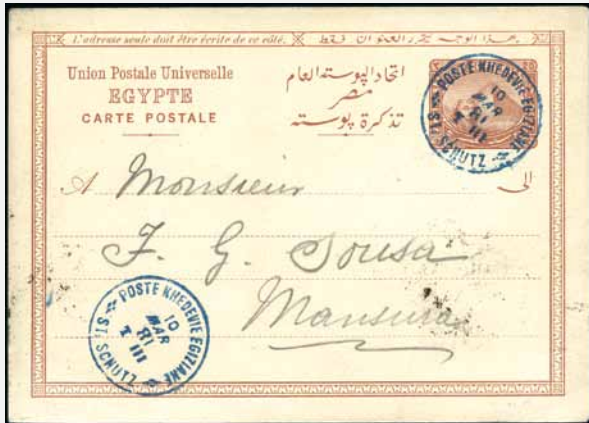 L'adresse seule doit être écrite de ce côté.
Union Postale Universelle
EGYPTE
CARTE POSTALE
اتحاد البوسته العام
مصر
تذكرة بوسته
POSTE KHEDEVIE EGIZIANE
10
MAR
81
T III
ST. SCHUTZ
A Monsieur
الى
F. G. Sousa
Mansura
POSTE KHEDEVIE EGIZIANE
10
MAR
81
T III
ST. SCHUTZ